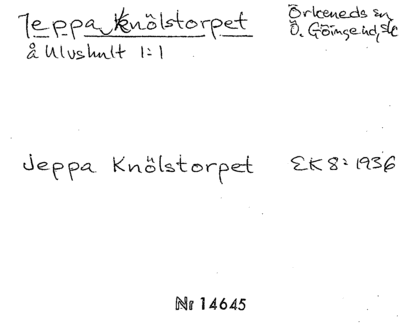 Jeppa Knölstorpet
å Ulvshult 1:1
Örkeneds sn
Ö. Göinge hd, Sk
Jeppa Knölstorpet EK 8: 1936
Nr 14645